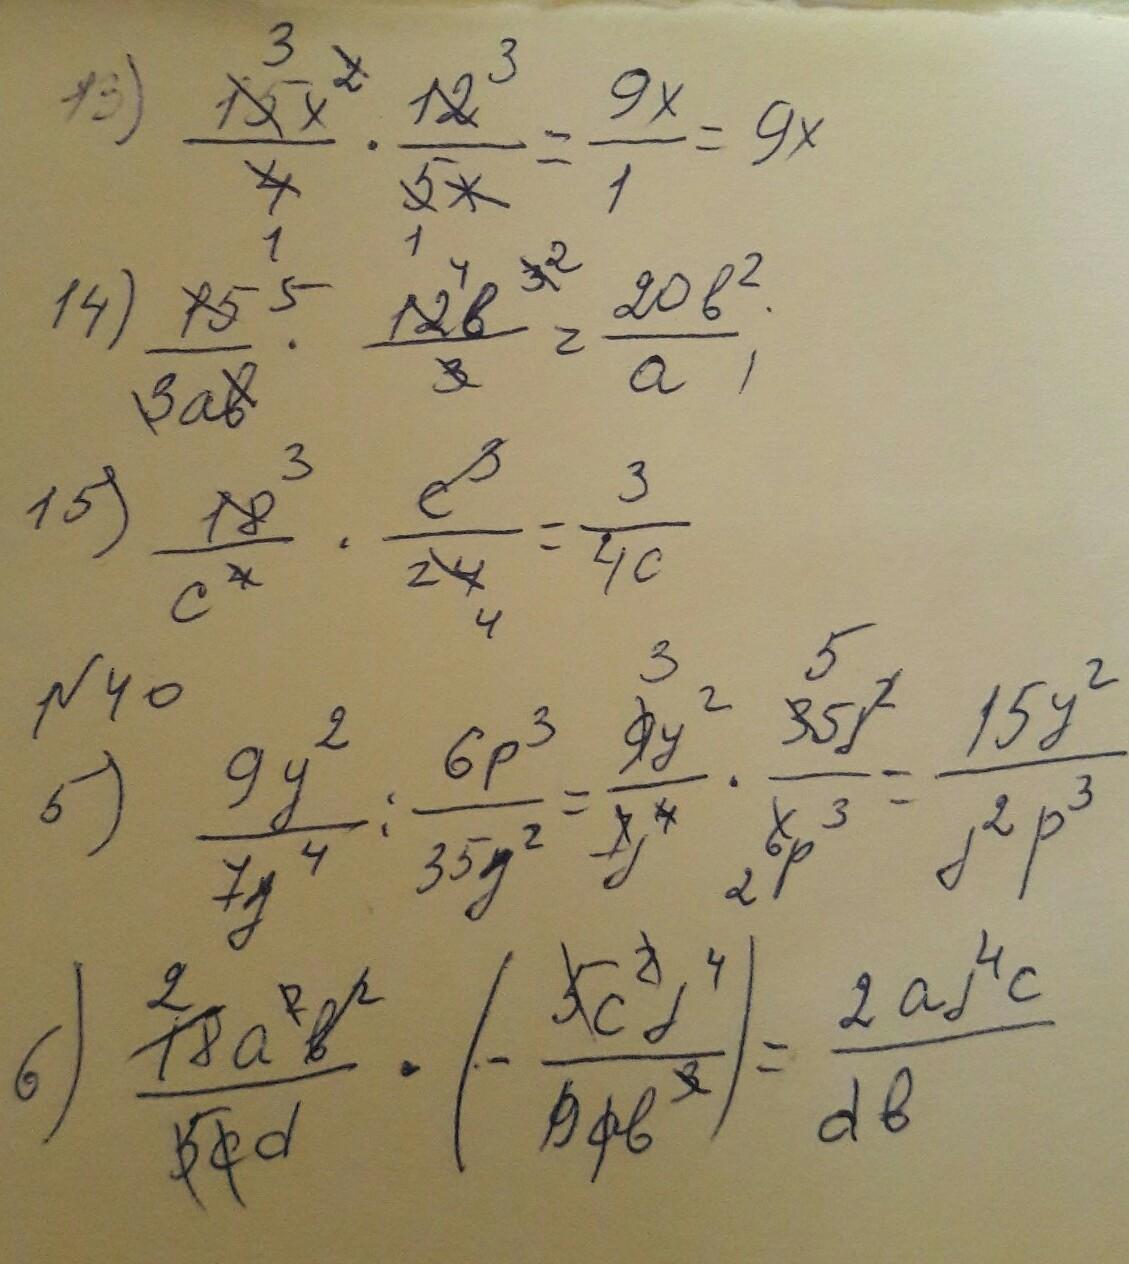 13) 15x²/4 · 12/5x = 9x/1 = 9x
14) 15/3ab · 12b³/3 = 20b²/a
15) 18/c⁴ · c³/24 = 3/4c
№40
5) 9y²/7y⁴ : 6p³/35y² = 9y²/7y⁴ · 35y²/6p³ = 15y²/y²p³
6) 18a²b²/5cd · (- 5c²y⁴/9ab³) = 2ay⁴c/db